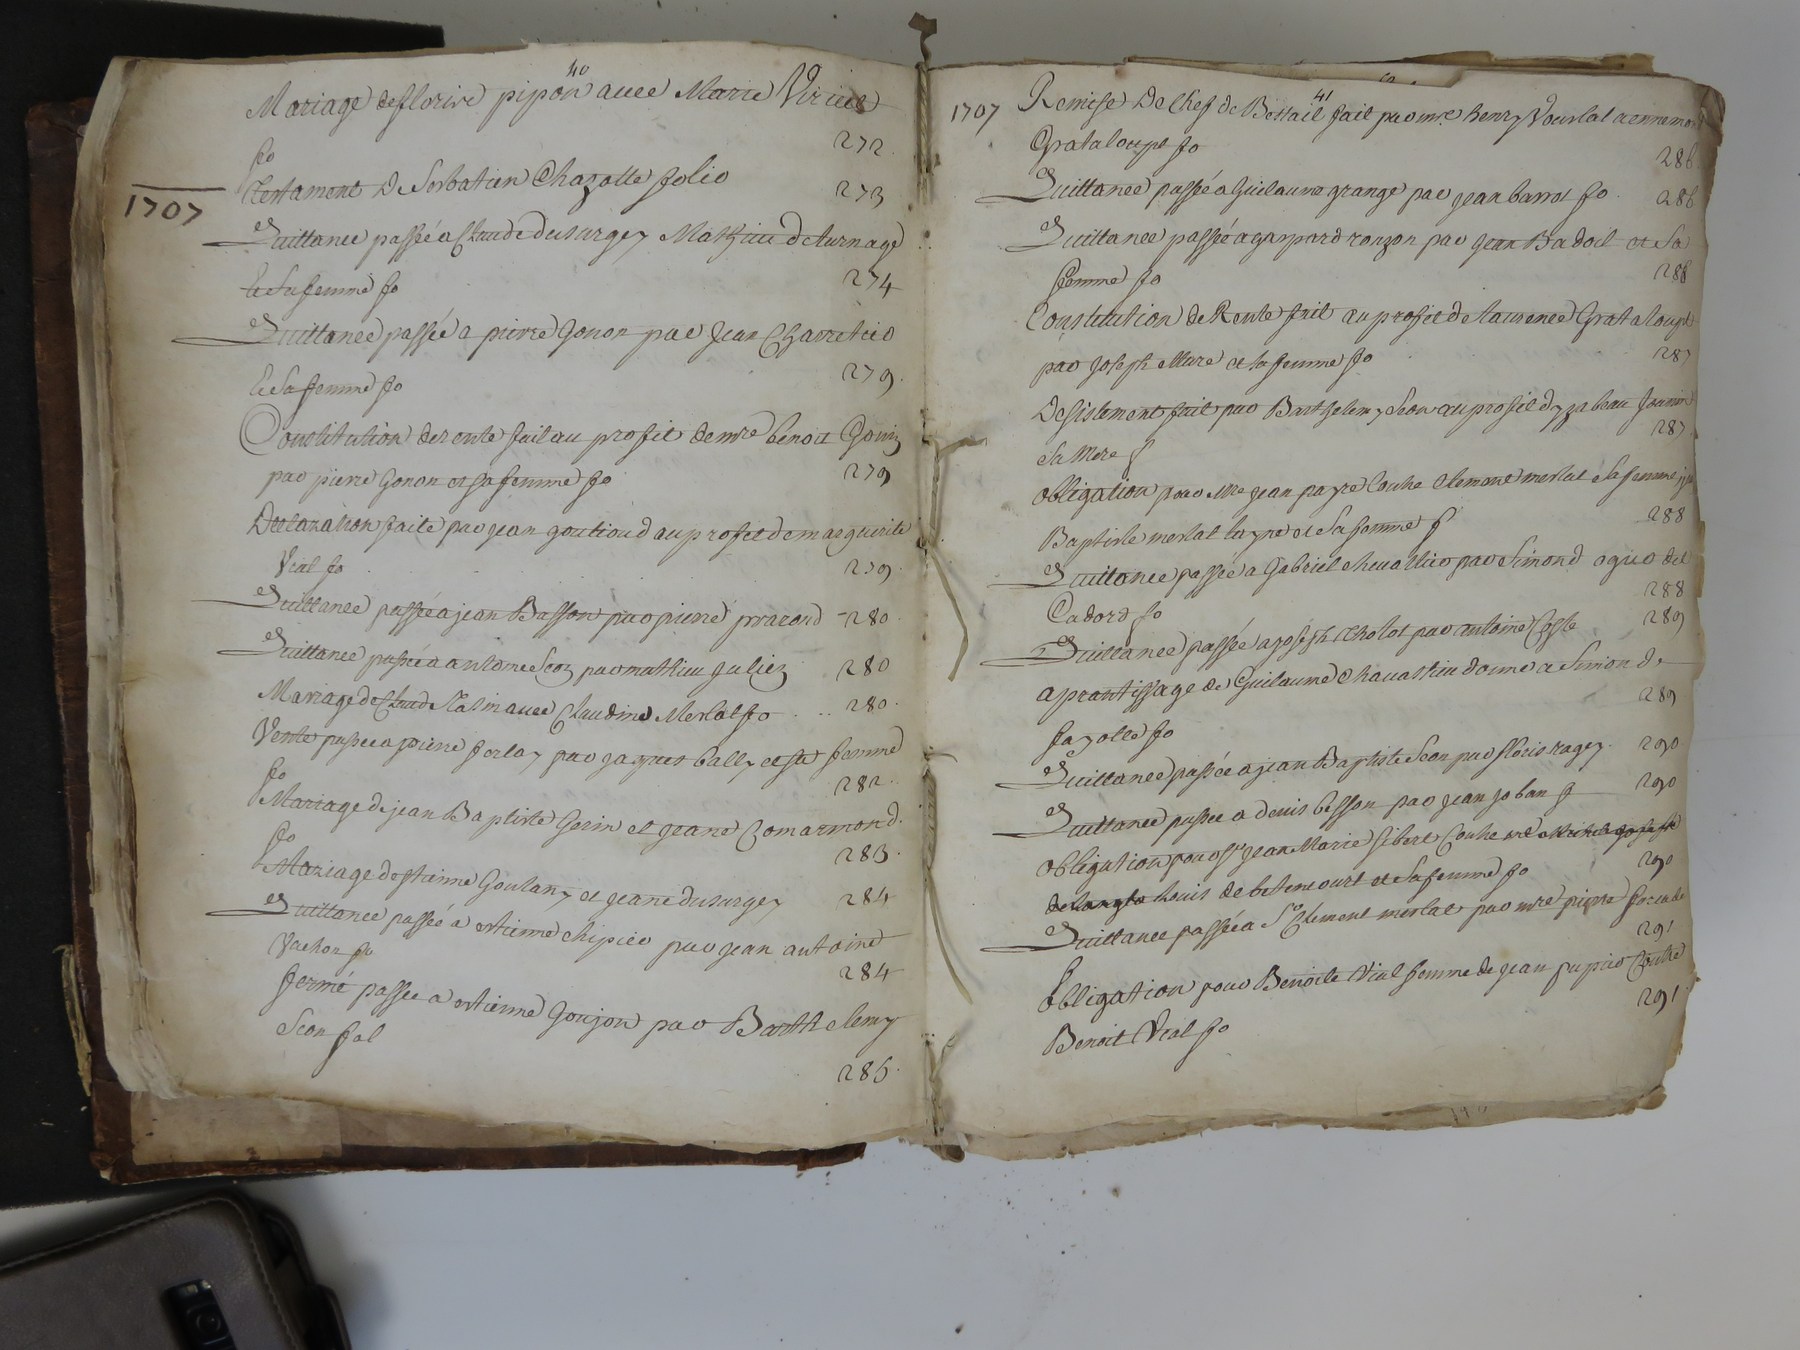 40
Mariage de florive pipon avec Marie Virieu
fo 272
1707
Testament De Sebatien Chazotte folio 273
Quittance passée a Claude dusurgey Mathieu deturnage
Et Sa femme fo 274
Quittance passée a pierre Gonon par Jean Charretier
Et Sa femme fo 279
Constitution de rente fait au profit de mre benoit Gonin
par pierre Gonon et sa femme fo 279
Declaration faite par jean goutioud au profet de marguerite
Vial fo 279
Quittance passée a jean Basson par pierre prarond 280
Quittance passée a antoine Seon par mathieu Julien 280
Mariage de Claude avec Claudine Merlat fo 280
Vente passee a pierre forlay par jaques bally et sa femme
fo 282
Mariage de jean Baptiste Gerin et jeane Comarmond
fo 283
Mariage destienne Goulany et jeane dusurgey 284
Quittance passée a estienne chipier par jean antoine
Vachon fo 284
ferme passee a estienne Goujon par Barthelemy
Seon fol 285
41
1707 Remise De Chef de Bettail fait par mre henry Vourlat a ennemond
Grataloupt fo 286
Quittance passée a Guilaume grange par jean barrot fo 286
Quittance passée a gaspard ronzon par jean Badoil et Sa
femme fo 288
Constitution de Rente fait au profit de laurence Grataloupt
par Joseph Mure et sa femme fo 287
Desistement fait par Barthelemy Seon au profit dyzabeau Jounin
Sa Mere f 287
obligation pour Mre jean payre Contre Clemont merlat Sa femme
Baptiste merlat layné et Sa femme f 288
Quittance passée a Gabriel chevallier par Simond ogier dit
Cadord fo 288
Quittance passée a joseph Cholot par antoine Coste 289
aprantissage de Guilaume Chavassieu donné a Simon de
fayolle fo 289
Quittance passée a jean Baptiste Seon par floris ragey 290
Quittance passee a denis besson par jean joban f 290
obligation pour Sr jean Marie sibert Contre mre
Louis de betencourt et Sa femme fo 290
Quittance passée a Sr Clement merlat par mre pierre
f 291
obligation pour Benoite Vial femme de jean pupier Contre
Benoit Vial fo 291